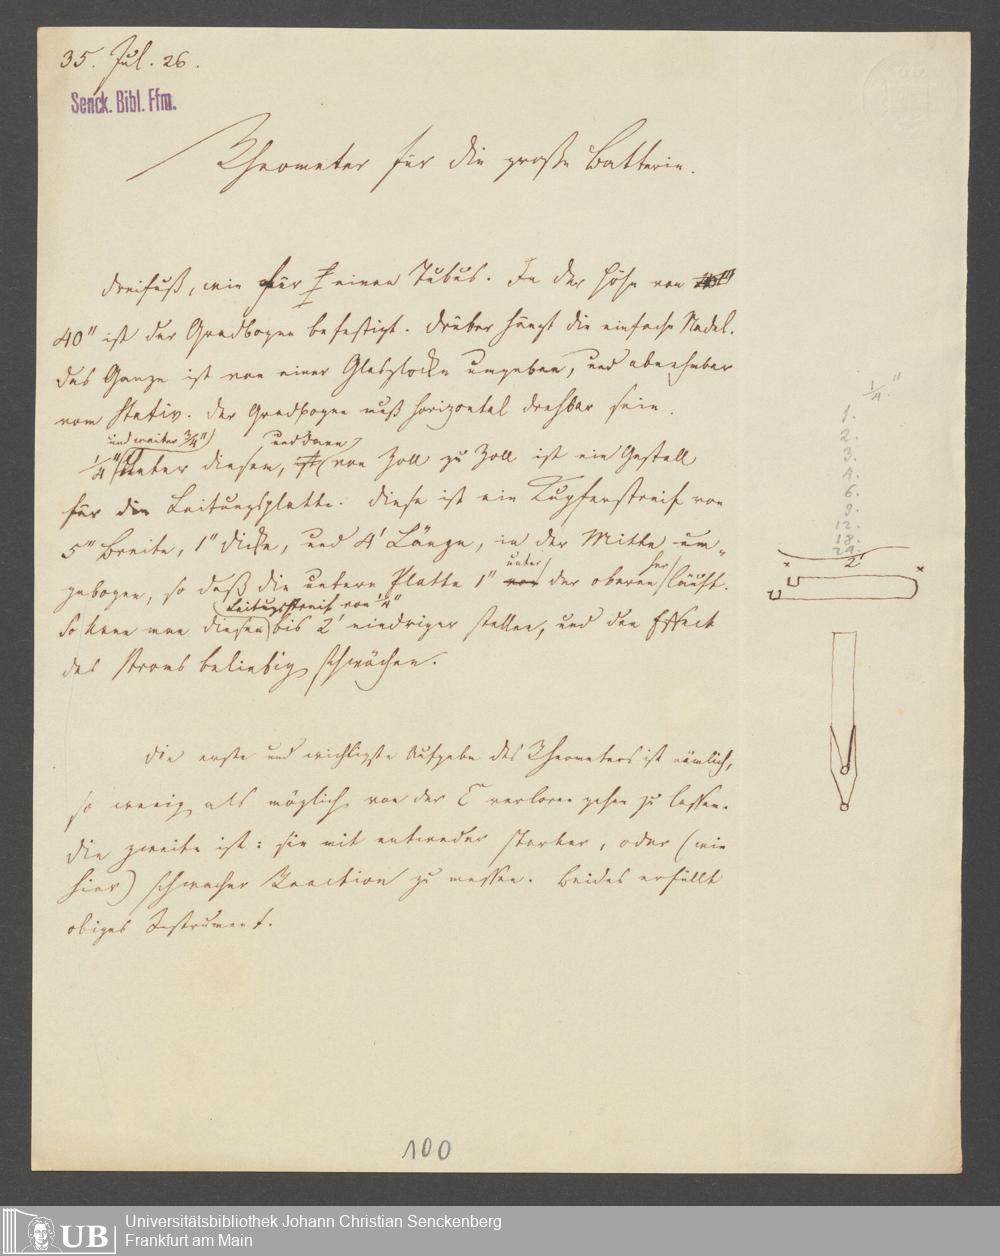 35. Jul. 26.
Senck. Bibl. Ffm.
Rheometer für die große Batterie.
Dreifuß, wie für einen Tubus. In der Höhe von
40" ist der Gradbogen befestigt. Drüber hängt die einfache Nadel.
Das Ganze ist von einer Glasglocke umgeben, und abnehmbar
vom Stativ. Der Gradbogen muß horizontal drehbar sein.
und weiter 3/4" und dann
1/4" Unter diesem, ist von Zoll zu Zoll ist ein Gestell
für die Leitungsplatte. Diese ist ein Kupferstreif von
5" Breite, 1" Dicke, und 4' Länge, in der Mitte um-
unter her
gebogen, so daß die untere Platte 1" von der oberen läuft.
Leitungsstreif von 1/4"
So kann man diesen bis 2' niedriger stellen, und den Effect
des Stroms beliebig schwächen.
Die erste und wichtigste Aufgabe des Rheometers ist nämlich,
so wenig als möglich von der E verloren gehen zu lassen.
Die zweite ist: sie mit entweder starker, oder (wie
hier) schwacher Reaction zu messen. Beides erfüllt
obiges Instrument.
1/4."
1.
2.
3.
4.
6.
9.
12.
18.
24.
2'
100
UB
Universitätsbibliothek Johann Christian Senckenberg
Frankfurt am Main